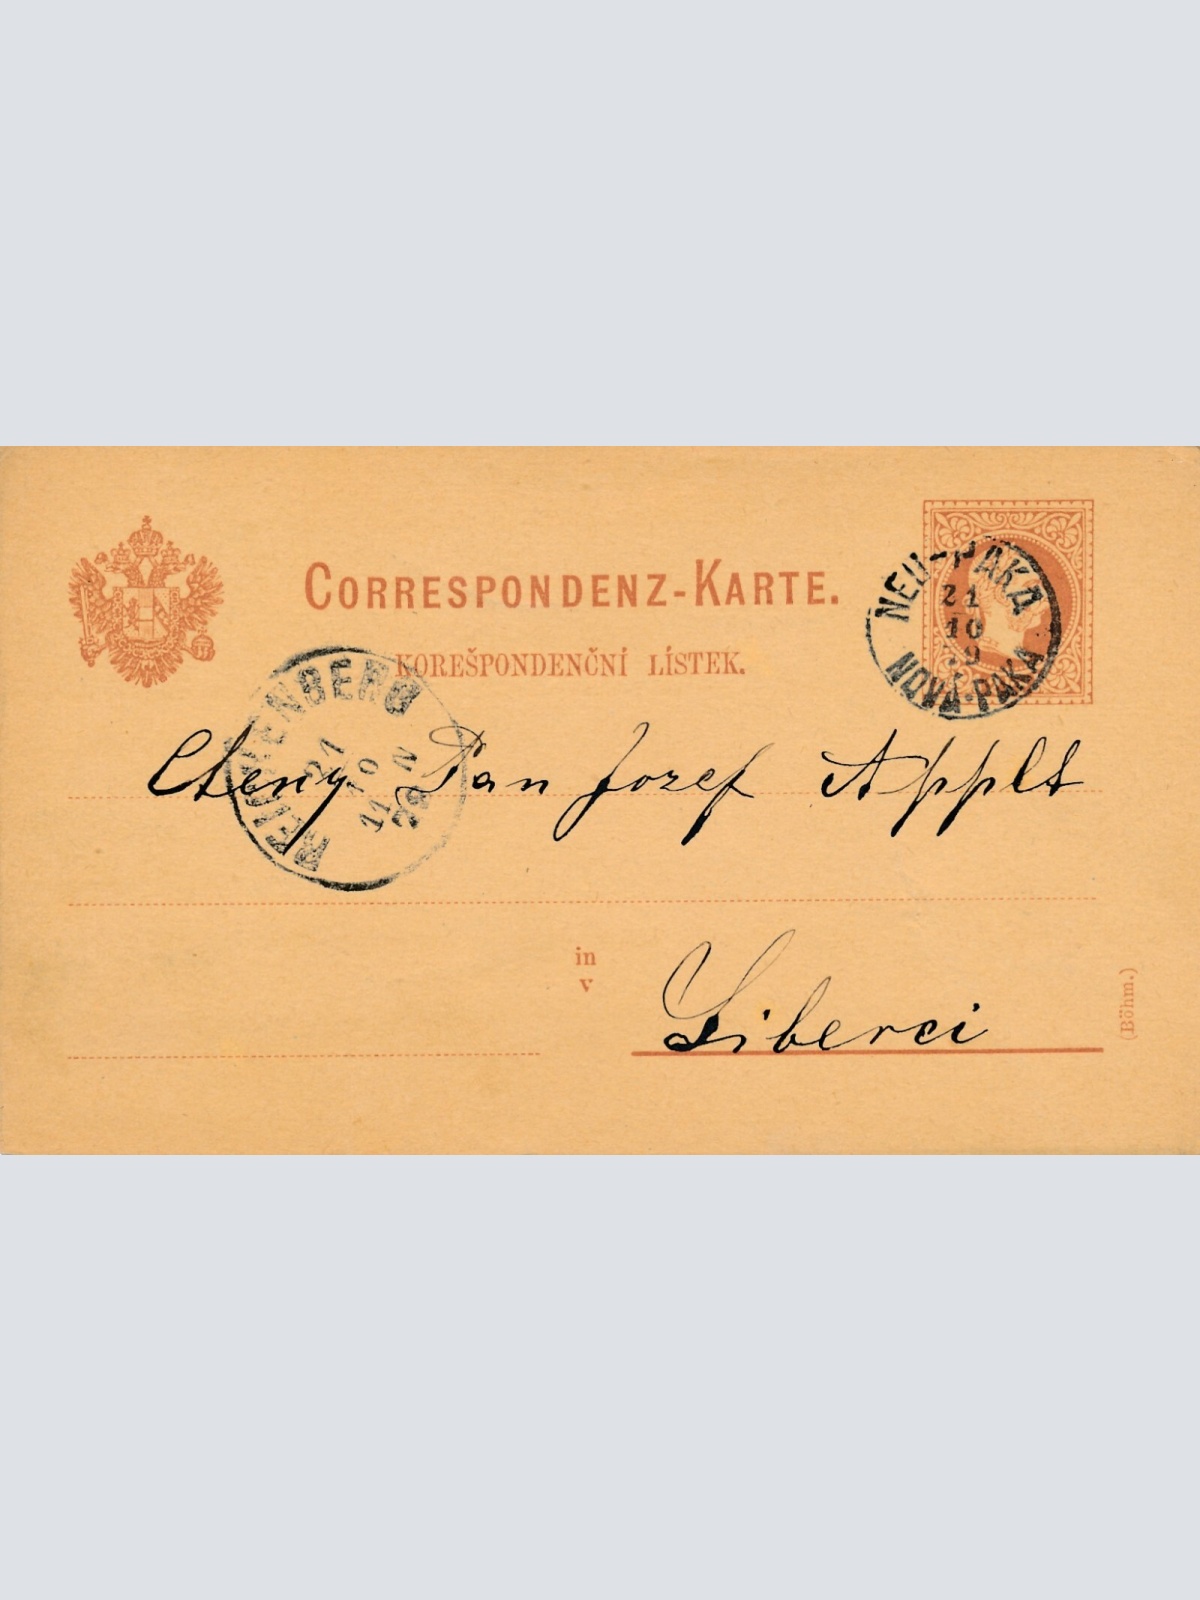 CORRESPONDENZ-KARTE.
KOREŠPONDENČNÍ LÍSTEK.
NEU-PAKA
21
10
79
NOVÁ-PAKA
REICHENBERG
21
10
11
Cteny Pan Jozef Applt
in
v
Liberci
(Böhm.)